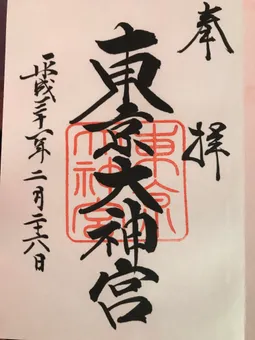 奉拝
東京大神宮
平成三十一年二月二十六日
東京
大神宮